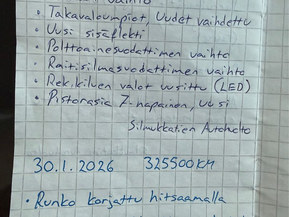 • Takavaloumpiot, Uudet vaihdettu
• Uusi sisäflekti
• Polttoainesuodattimen vaihto
• Raitisilmasuodattimen vaihto
• Rek.kilven valot uusittu (LED)
• Pistorasia 7-napainen, uusi
Silmukkatien Autohuolto
30.1.2026 325500 KM
• Runko korjattu hitsaamalla